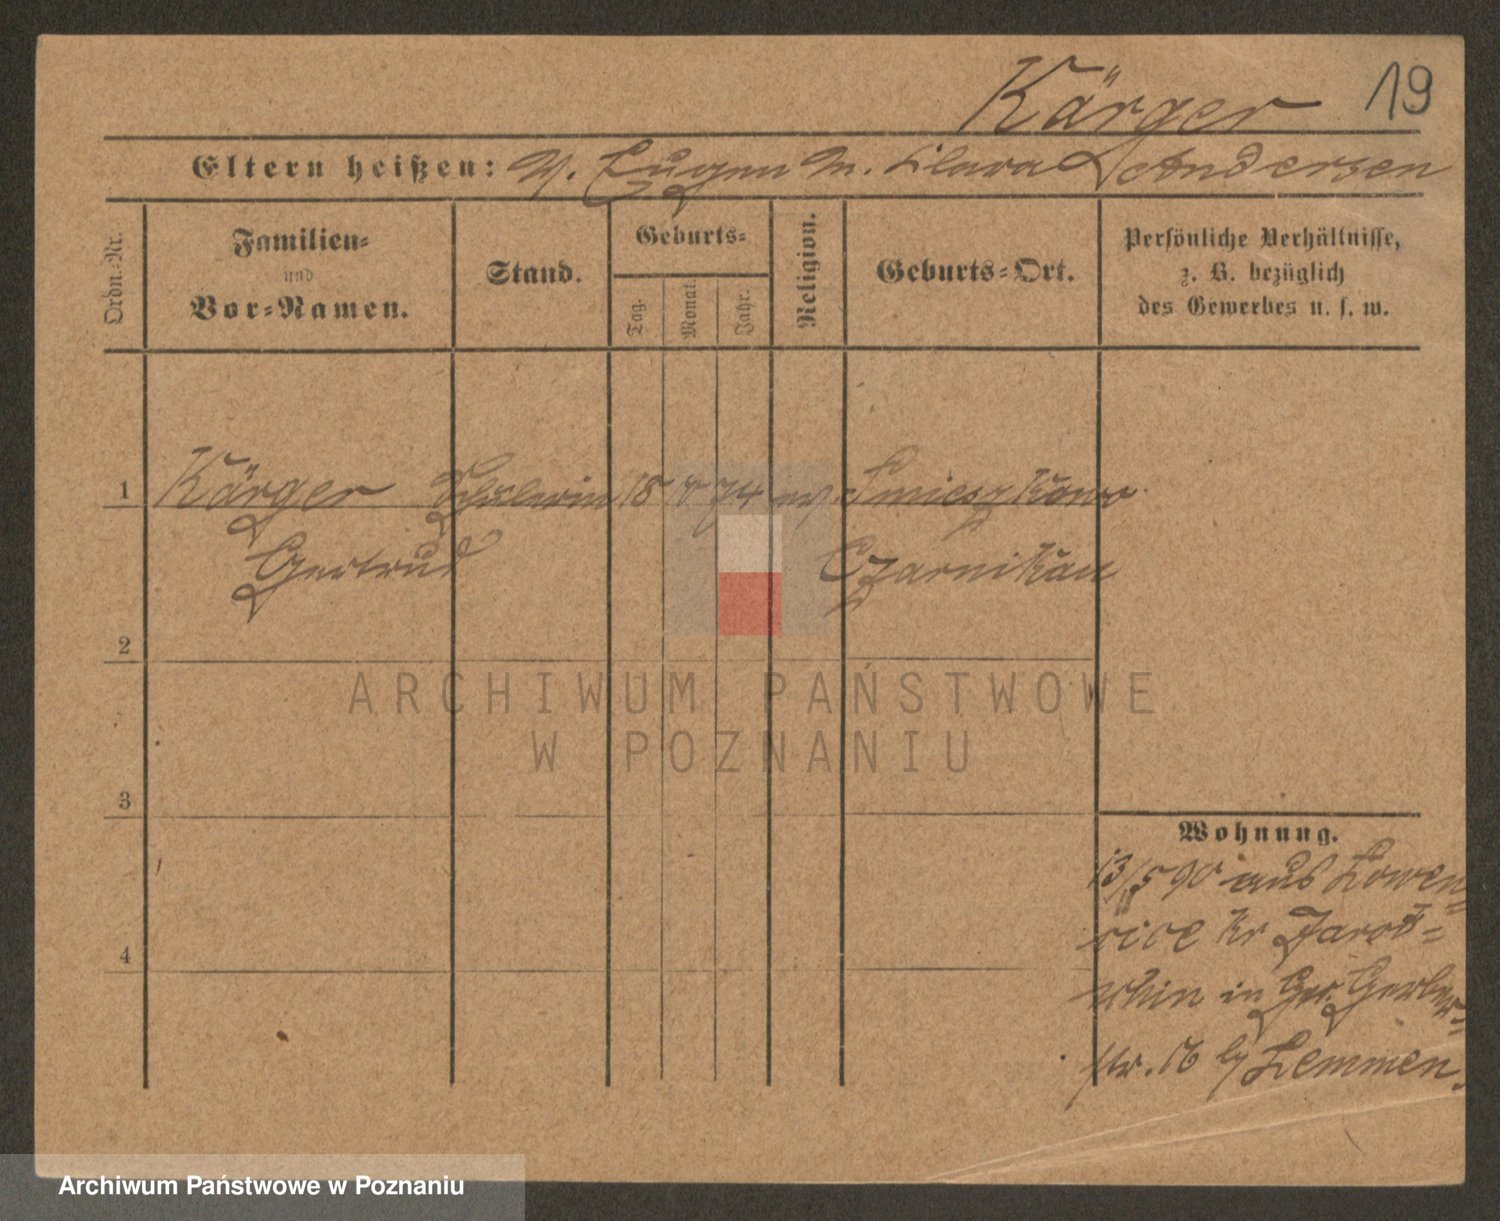 Kärger 19
Eltern heißen: V. Eugen M. Clara Andersen
Ordn.-Nr.
Familien-
und
Vor-Namen.
Stand.
Geburts-
Tag.
Monat.
Jahr.
Religion.
Geburts-Ort.
Persönliche Verhältnisse,
z. B. bezüglich
des Gewerbes u. s. w.
1 Kärger Schülerin 18 4 74 ev. Smieszkowo
Gertrud Czarnikau
2
3
4
Wohnung.
13/5 90 aus Lowen-
cice Kr Jarot-
schin in Gr. Gerber-
str. 16 b/ Lemmen.
ARCHIWUM PAŃSTWOWE
W POZNANIU
Archiwum Państwowe w Poznaniu